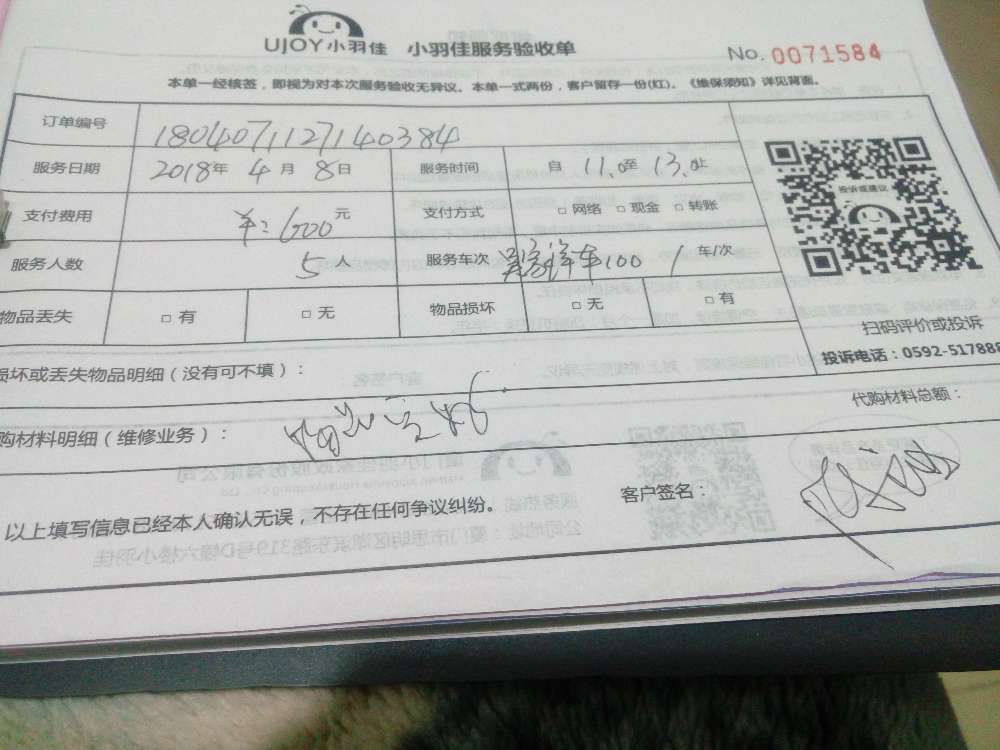 UJOY小羽佳 小羽佳服务验收单 No. 0071584
本单一经核签，即视为对本次服务验收无异议。本单一式两份，客户留存一份(红)。《维保须知》详见背面。
订单编号 180407112714 0384
服务日期 2018年 4月 8日 服务时间 自 11.0至 13.0止
支付费用 ￥:600元 支付方式 □ 网络 □ 现金 □ 转账
服务人数 5人 服务车次 100 1 车/次
物品丢失 □ 有 □ 无 物品损坏 □ 无 □ 有
投诉或建议
扫码评价或投诉
投诉电话：0592-517888
损坏或丢失物品明细（没有可不填）：
购材料明细（维修业务）： 代购材料总额：
以上填写信息已经本人确认无误，不存在任何争议纠纷。 客户签名：